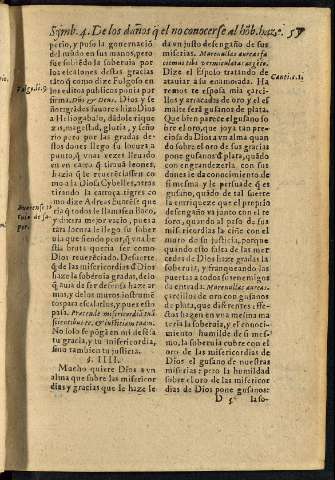 Symb. 4. De los daños q̃ el no conocerse al hõb. haze. 57
perio, y puso la gouernació
del mũdo en sus manos, pero
fue subiẽdo la soberuia por
los escalones destas gracias
tãto q̃ como dize Fulgoso en
los editos publicos ponia por
firma. Dios
y se
ñor grãdes fauores hizo Dios
a Heliogabalo, dádole rique
zas, magestad, gloria, y seño
rio pero por las gradas de-
stos dones llego su locura a
punto, q̃ vnas vezes lleuãdo
vn en carro q̃ tiraua leones,
hazia q̃ le reuerẽciassen co-
mo a la Diosa Cybelles, otras
tirando la carroça tigres co
mo dize Adreas
ria q̃ todos le llamassen Baco,
y diesen mejor vazio, pues a
tãta locura le llego su sober
uia que siendo peor, q̃ vna be
stia bruta queria ser como
Dios reuerẽciado. De suerte
q̃ de las misericordias q̃ Dios
haze la soberuia gradas, de lo
q̃ auia de ser defensa haze ar
mas, y de los muros instrumẽ
tos para escalarlos, y pues esto
passa. Praetende misericordiã tuã
scientibus te, & iustitiam tuam.
No solo se põga en mi defẽsa
tu gracia, y tu misericordia,
sino tambien tu justicia.
§. IIII.
Mucho quiere Dios a vn
alma que sobre las misericor
dias y gracias que le haze le
da vn justo desengaño de sus
miserias. Murenullas aureas fa
ciemus tibi vermiculatas argẽto.
Dize el Esposo tratando de
atauiar a su enamorada. Ha
remos te esposa mia çarci-
llos y arracadas de oro y el es
malte será gusanos de plata.
Que bien parece el gusano so
bre el oro, que joya tan pre-
ciosa de Dios a vn alma quan
do sobre el oro de sus gracias
pone gusanos q̃ plata, quãdo
con engrandezerla, con sus
dones le da conocimiento de
si mesma y le persuade q̃ es
gusano, quãdo de tal suerte
la enriqueze que el proprio
desengaño va junto con el te
soro, quando al peso de sus
misericordias la ciñe con el
muro de su justicia, porque
quando esto falta de las mer
cedes de Dios haze gradas la
soberuia, y franqueando las
puertas a todos sus enemigos
da entrada. Murenullas aureas.
çarcillos de oro con gusanos
de plata, que diferentes efe-
ctos hazen en vna mesma ma
teria la soberuia, y el conoci-
miento humilde de si mes-
mo, la soberuia cubre con el
oro de las misericordias de
Dios el gusano de nuestras
miserias: pero la humildad
sobre el oro de las misericor
dias de Dios pone gusanos:
D 5 la so-
Fulgosi. 9.
per.
Cantic. 1.